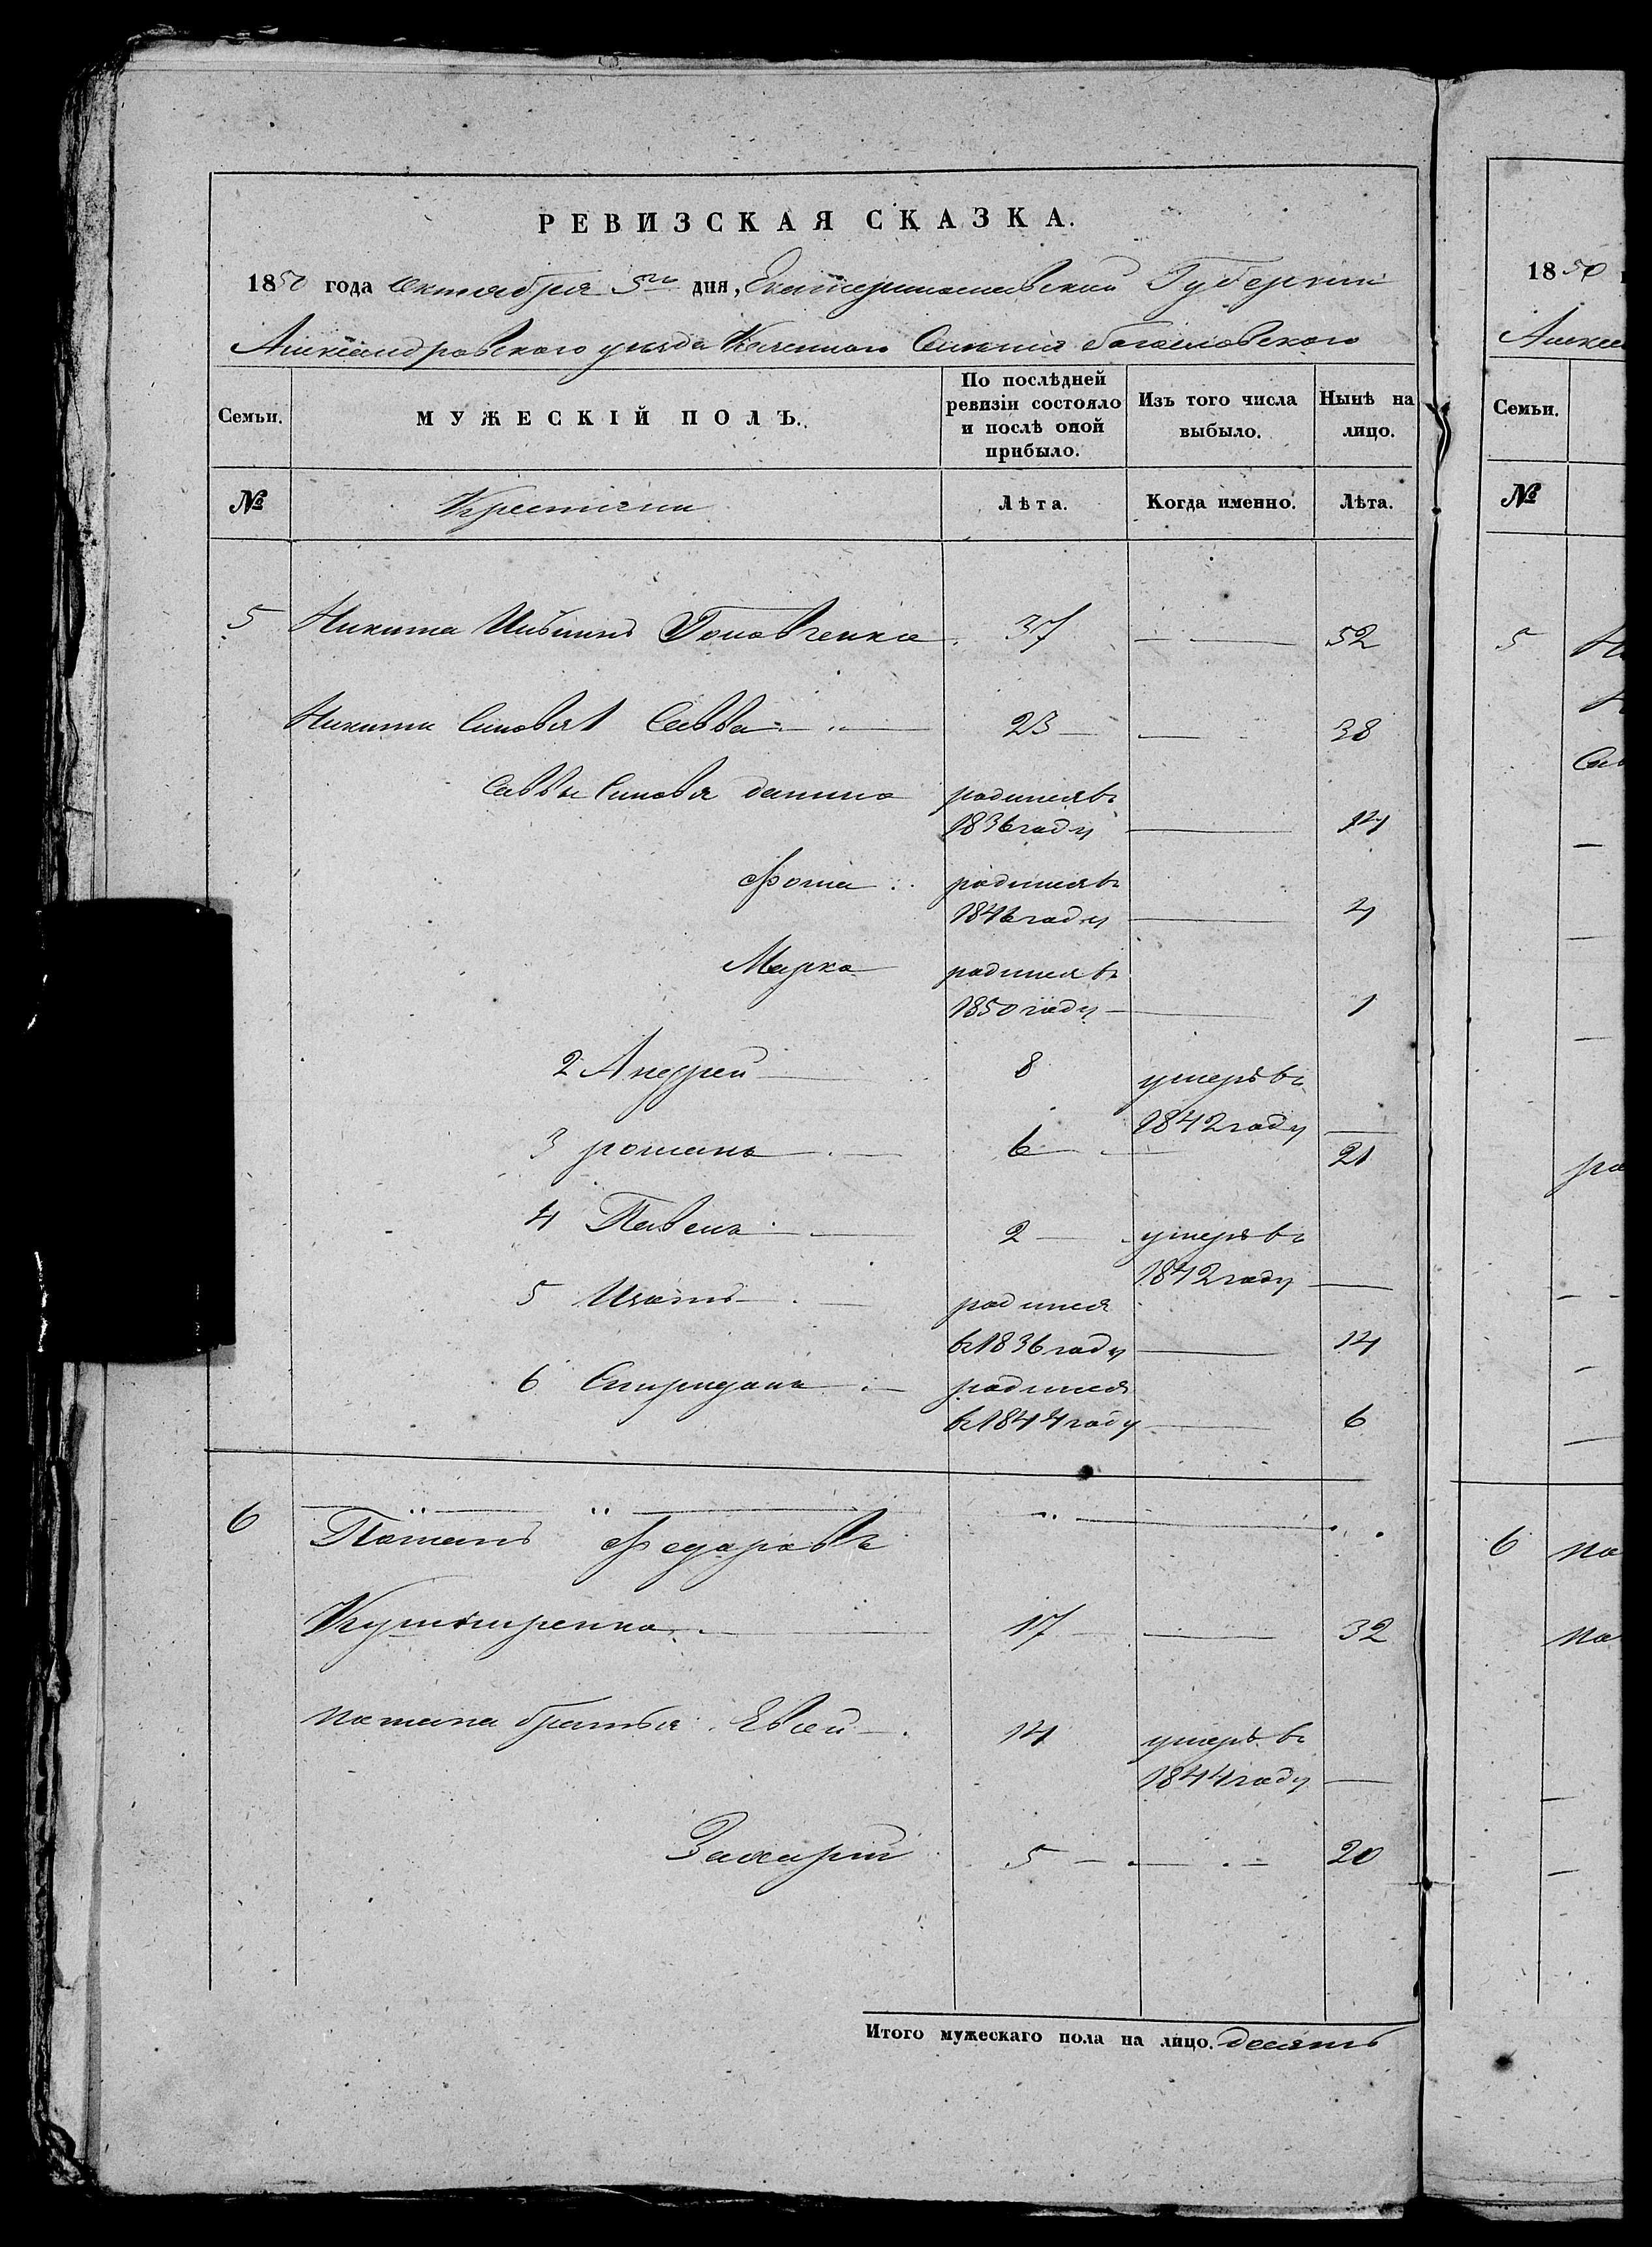 РЕВИЗСКАЯ СКАЗКА.
1850 года октября 5го дня, Екатеринославской Губернии
Александровского уезда Казенного Селения богословского
Семьи. МУЖЕСКІЙ ПОЛЪ. По послѣдней ревизіи состояло и послѣ оной прибыло. Изъ того числа выбыло. Нынѣ на лицо.
№ Крестяни Лѣта. Когда именно. Лѣта.
5 Никита Ивановъ Головченко 37 — 52
Никити Синовя 1 Савва 23 — 38
Саввы Синовя данило родился въ
1836 году — 14
Фома родился въ
1846 году — 4
Марко родился въ
1850 году — 1
2 Андрей 8 умеръ въ
1842 году —
3 романъ 6 — 21
4 Павелъ 2 умеръ въ
1842 году —
5 Игнатъ родился
въ 1836 году — 14
6 Спиридонъ родился
въ 1844 году — 6
6 Потапъ Федоровъ
Кушниренко 17 — 32
потапа братья Евсей 14 умеръ въ
1844 году —
Захарій 5 — 20
Итого мужескаго пола на лицо. десять
1850
Алекса
Семьи.
№
5
6 по
по